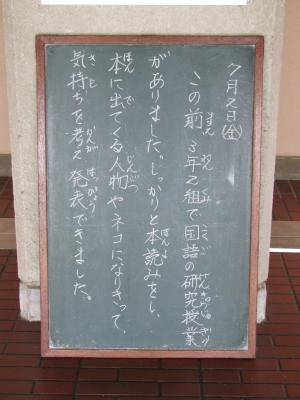 7月2日(金)
この前、3年2組で国語の研究授業
がありました。しっかりと本読みをし、
本に出てくる人物やネコになりきって、
気持ちを考え発表できました。